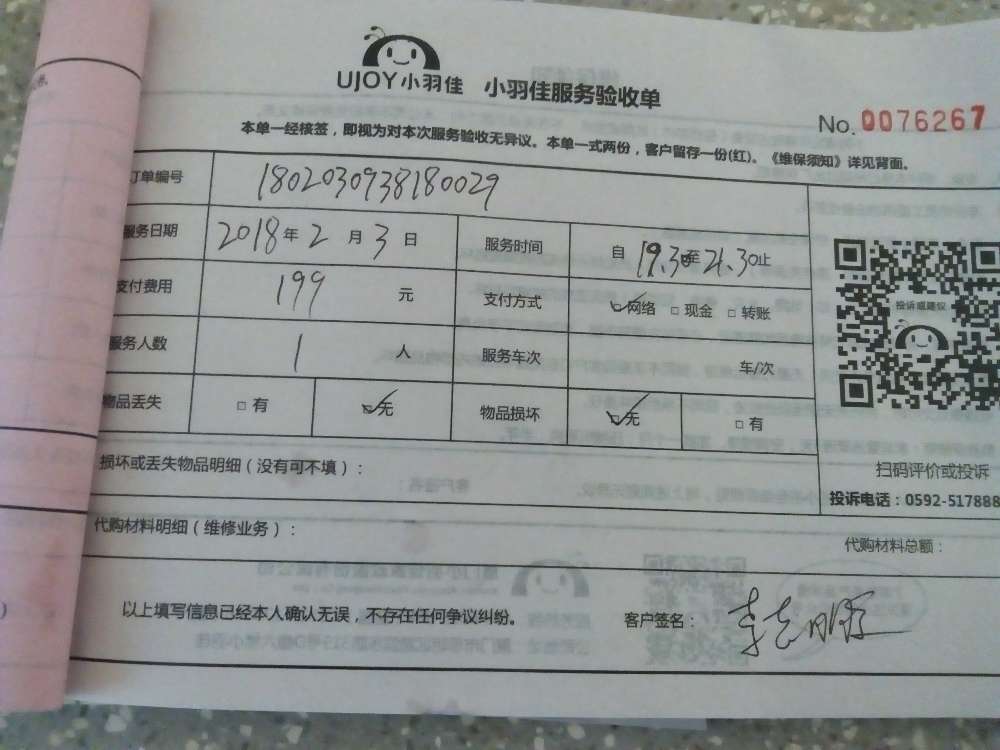 UJOY小羽佳 小羽佳服务验收单
No.0076267
本单一经核签，即视为对本次服务验收无异议。本单一式两份，客户留存一份(红)。《维保须知》详见背面。
订单编号 1802030938180029
服务日期 2018年2月3日 服务时间 自19.30至21.30止
支付费用 199元 支付方式 ☑网络 □现金 □转账
投诉或建议
服务人数 1人 服务车次 车/次
物品丢失 □有 ☑无 物品损坏 ☑无 □有
损坏或丢失物品明细（没有可不填）：
扫码评价或投诉
投诉电话：0592-517888
代购材料明细（维修业务）：
代购材料总额：
以上填写信息已经本人确认无误，不存在任何争议纠纷。 客户签名：